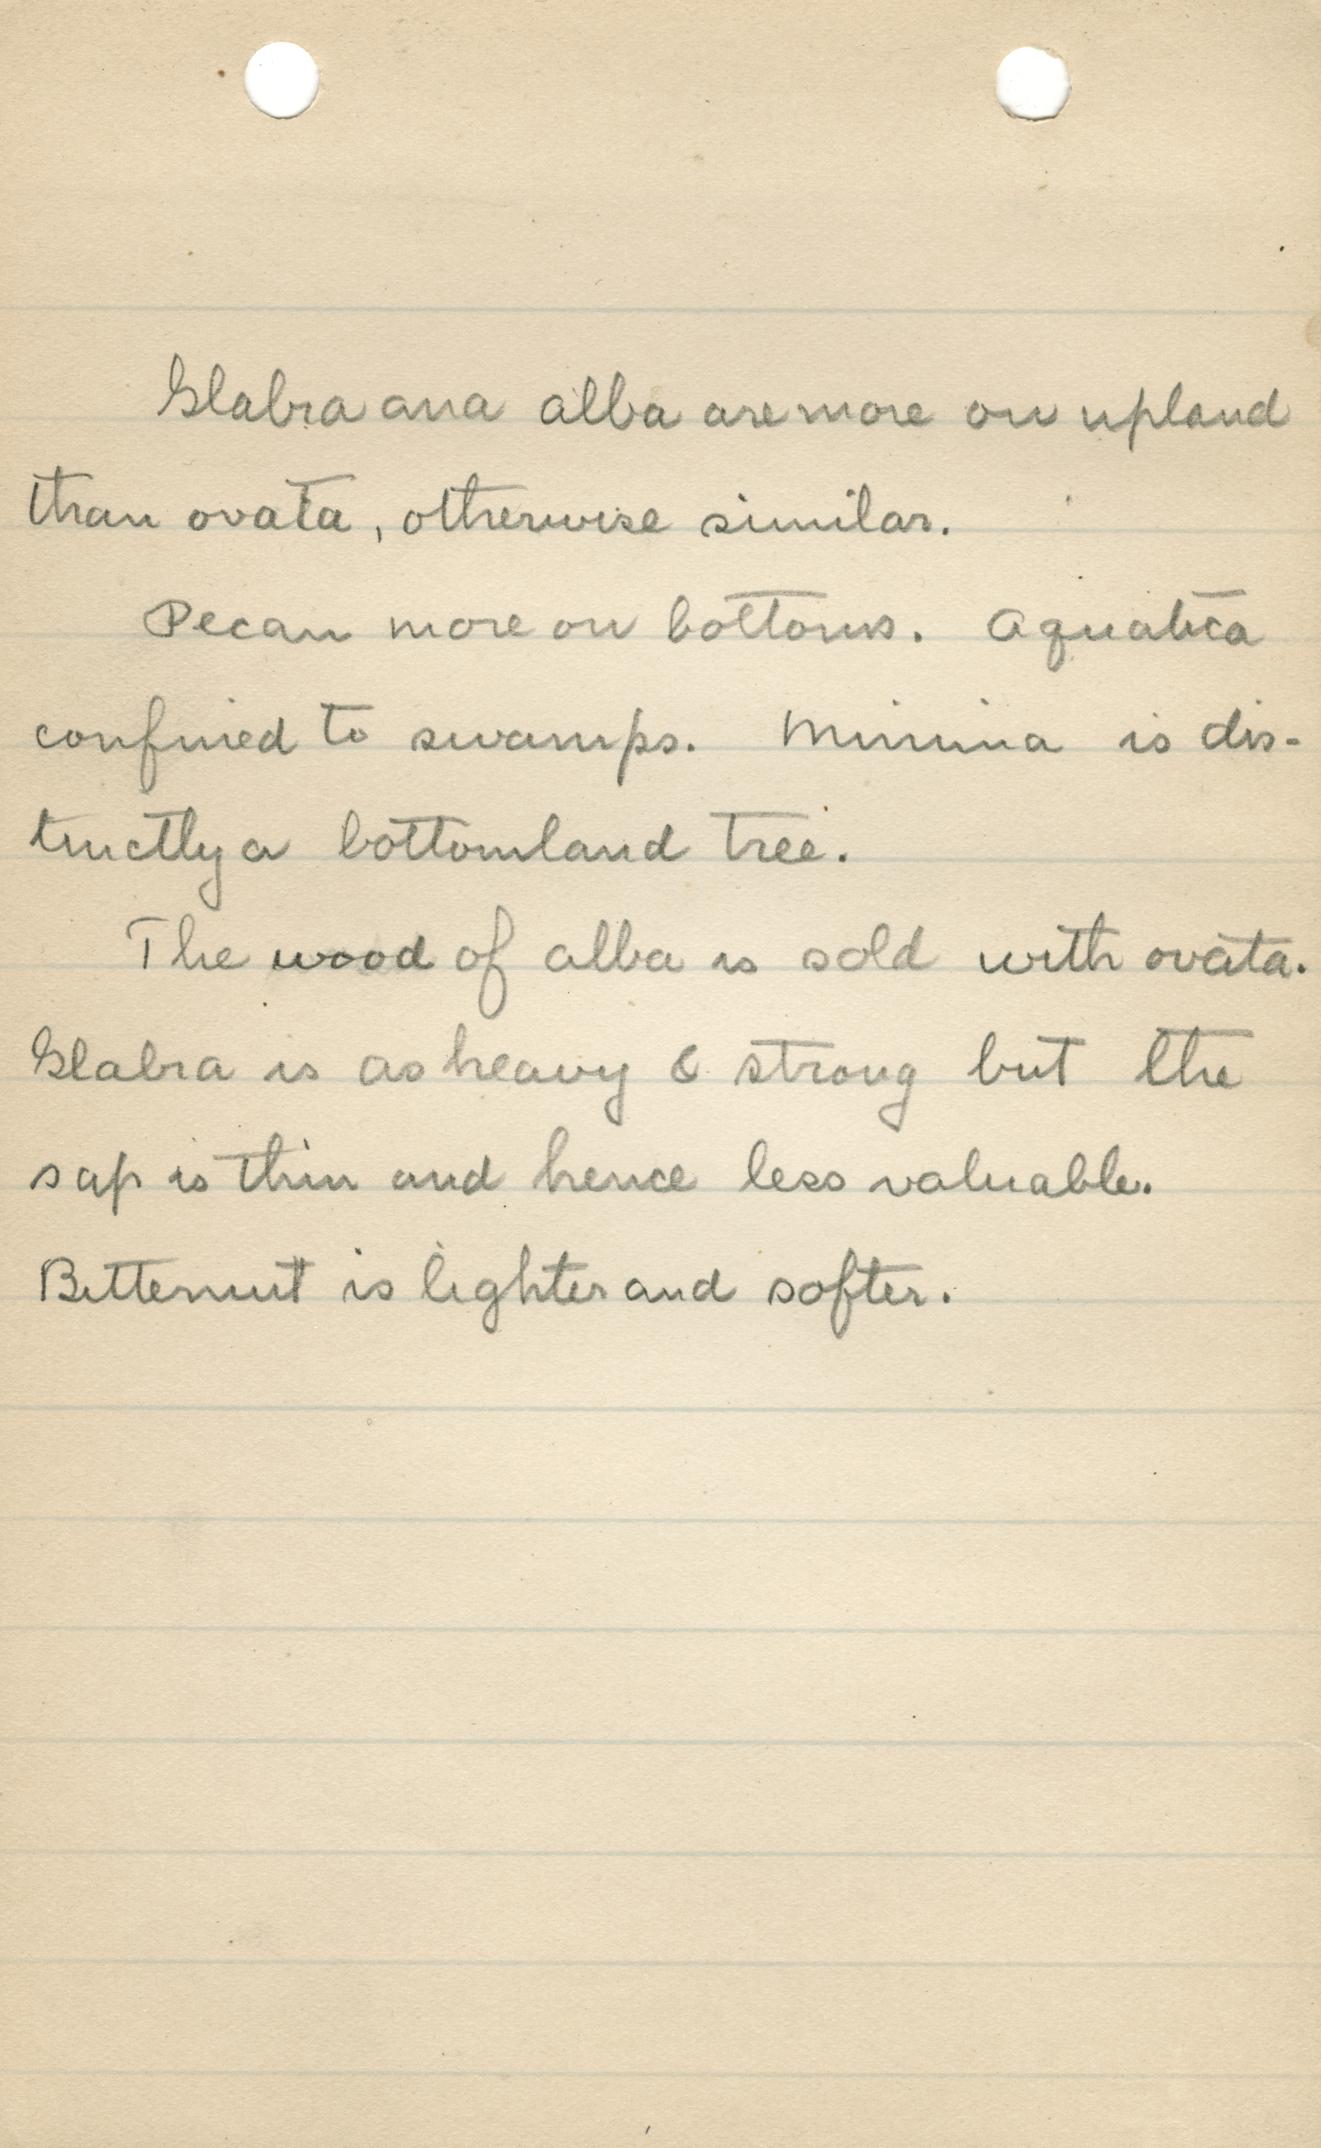 Glabra and alba are more on upland
than ovata, otherwise similar.
Pecan more on bottoms. Aquatica
confined to swamps. Minima is dis-
tinctly a bottomland tree.
The wood of alba is sold with ovata.
Glabra is as heavy & strong but the
sap is thin and hence less valuable.
Bitternut is lighter and softer.